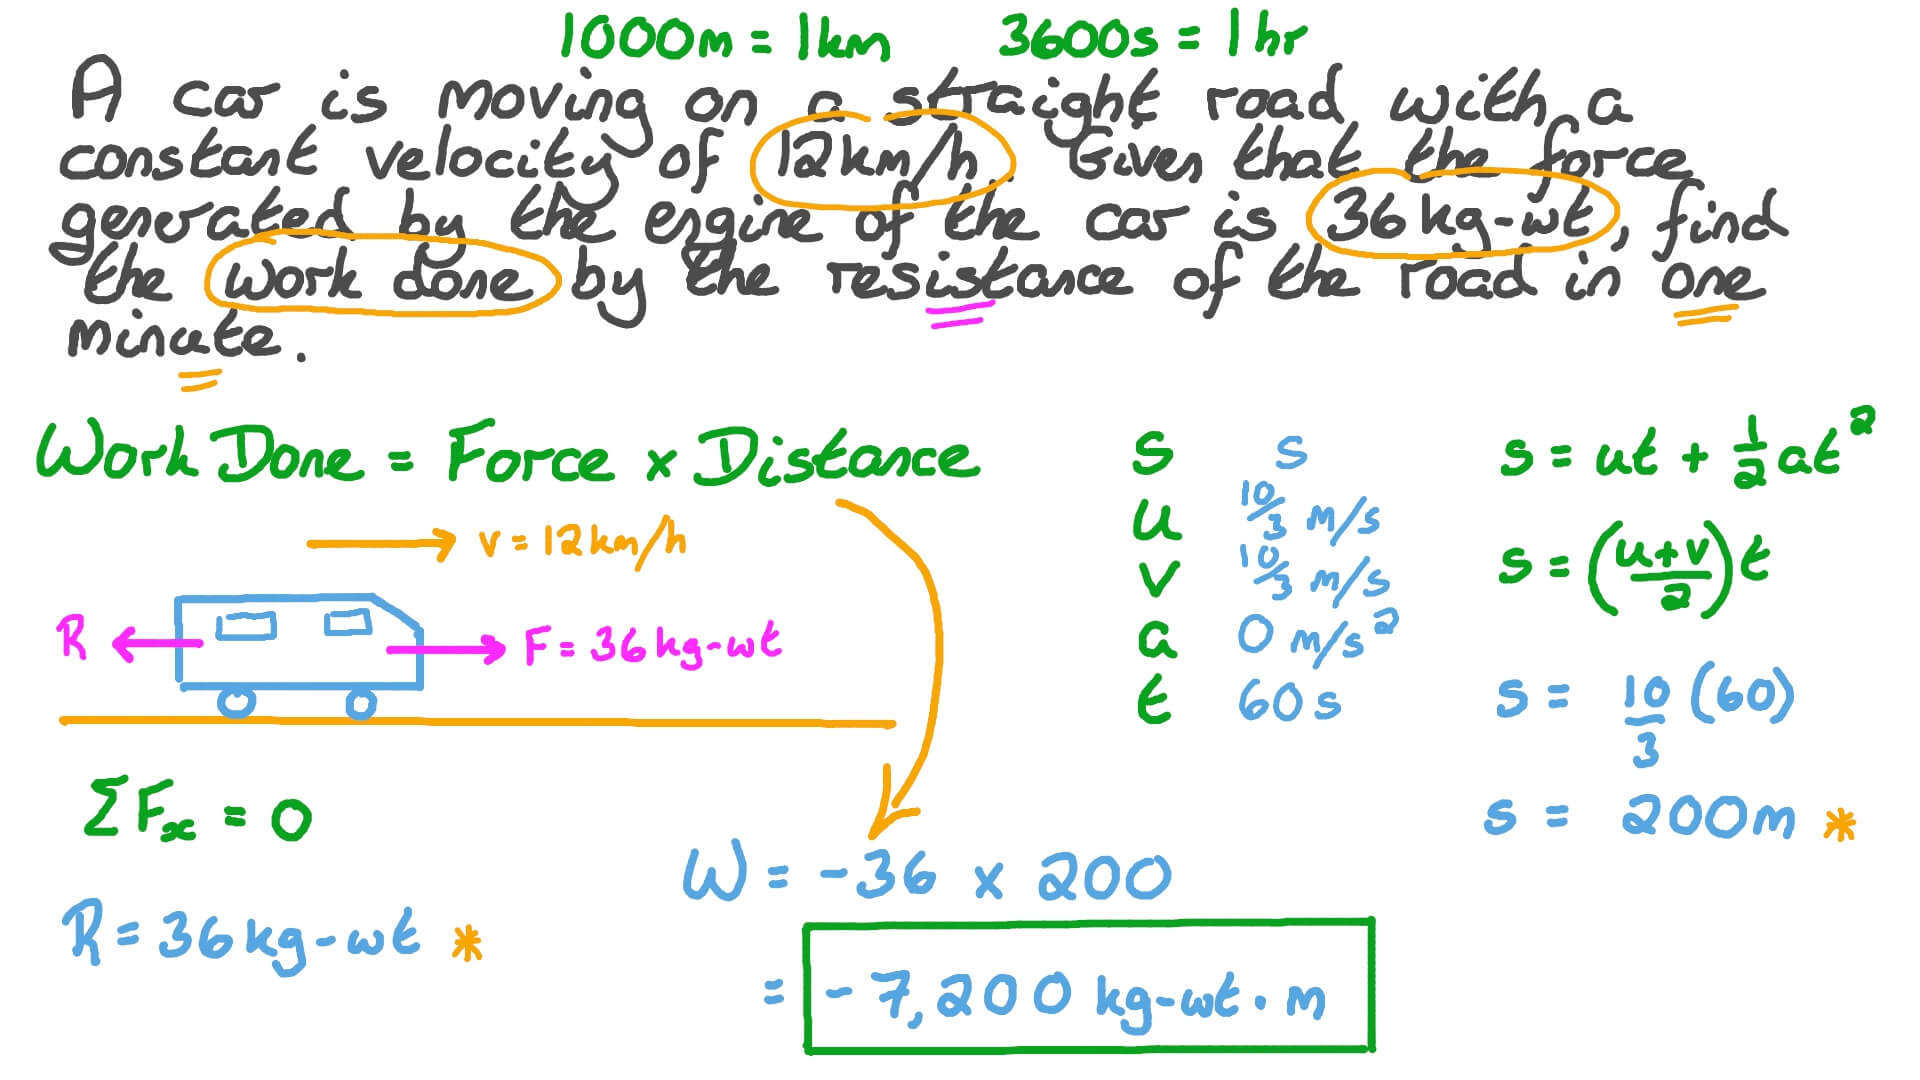 1000m = 1km 3600s = 1hr
A car is moving on a straight road with a
constant velocity of 12km/h Given that the force
generated by the engine of the car is 36kg-wt, find
the work done by the resistance of the road in one
minute.
Work Done = Force x Distance
v = 12km/h
R
F = 36kg-wt
ΣFx = 0
R = 36kg-wt *
s s
u 10/3 m/s
v 10/3 m/s
a 0 m/s²
t 60s
s = ut + 1/2 at²
s = (u+v/2)t
s = 10/3 (60)
s = 200m *
W = -36 x 200
= -7,200 kg-wt · m